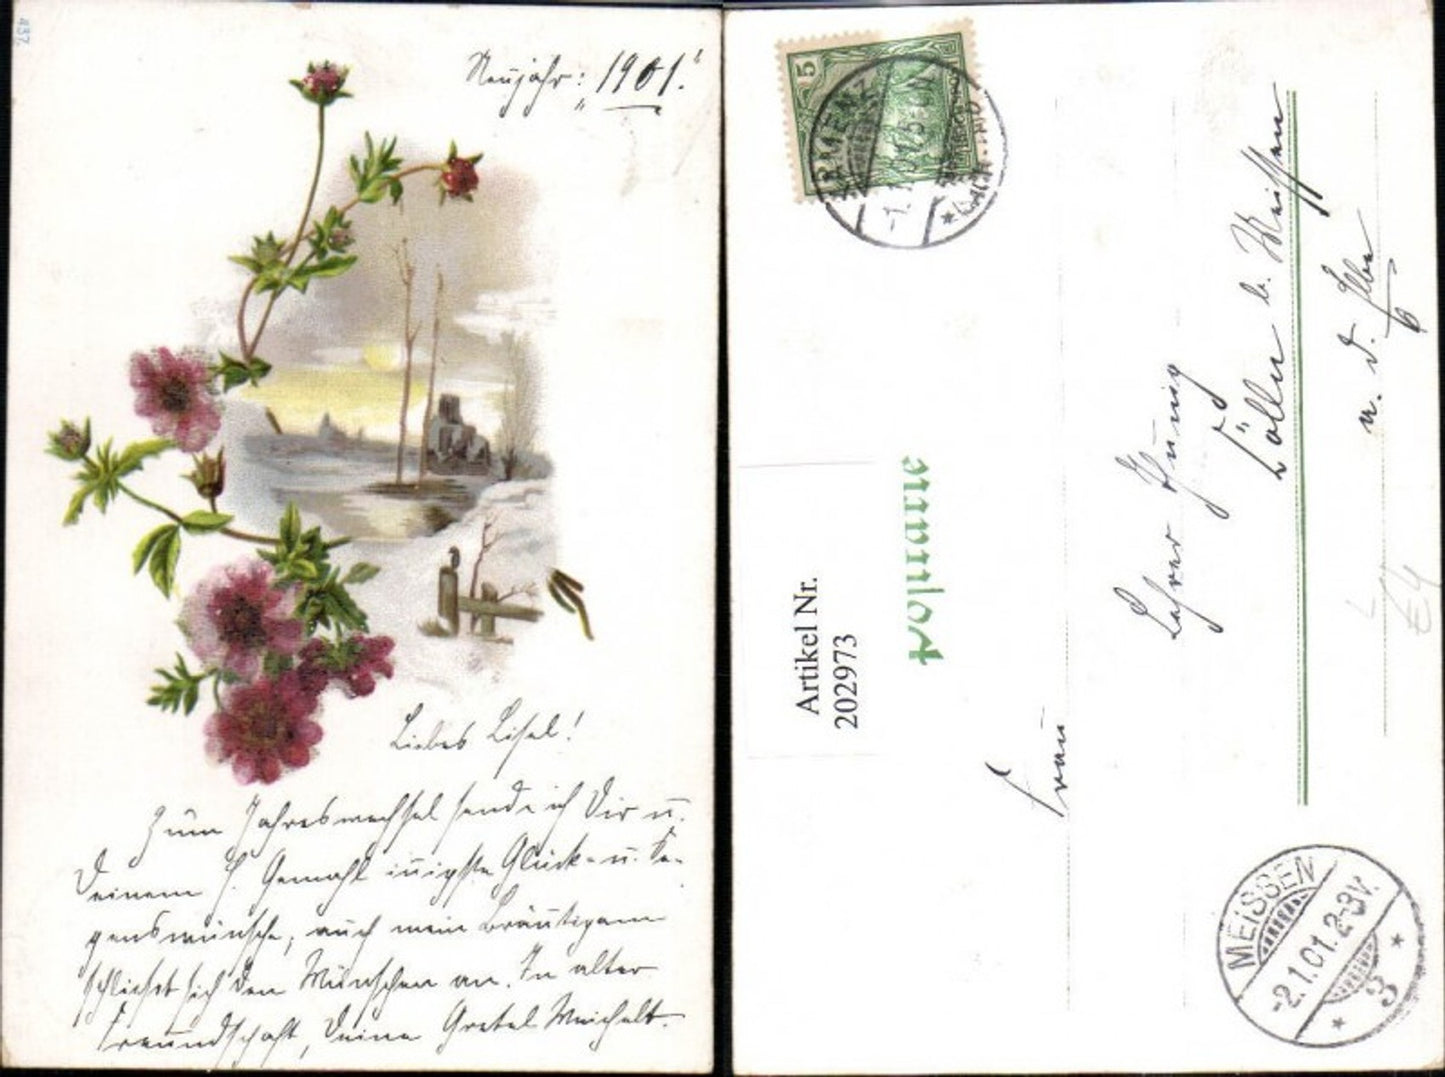 437.
Neujahr: "1901."
Liebes Lisel!
Zum Jahreswechsel sende ich Dir u.
Deinem H. Gemahl innigste Glück- u. Se-
genswünsche, auch mein Bräutigam
schliesst sich den Wünschen an. In alter
Freundschaft, Deine Gretel Weichelt.
5
KAMENZ
(SACHSEN)
Artikel Nr.
202973
Postkarte
Frau
Lehrer
Cölln b. Meissen
a. d. Elbe
MEISSEN
-2.1.01.2-3V.
* 3 *